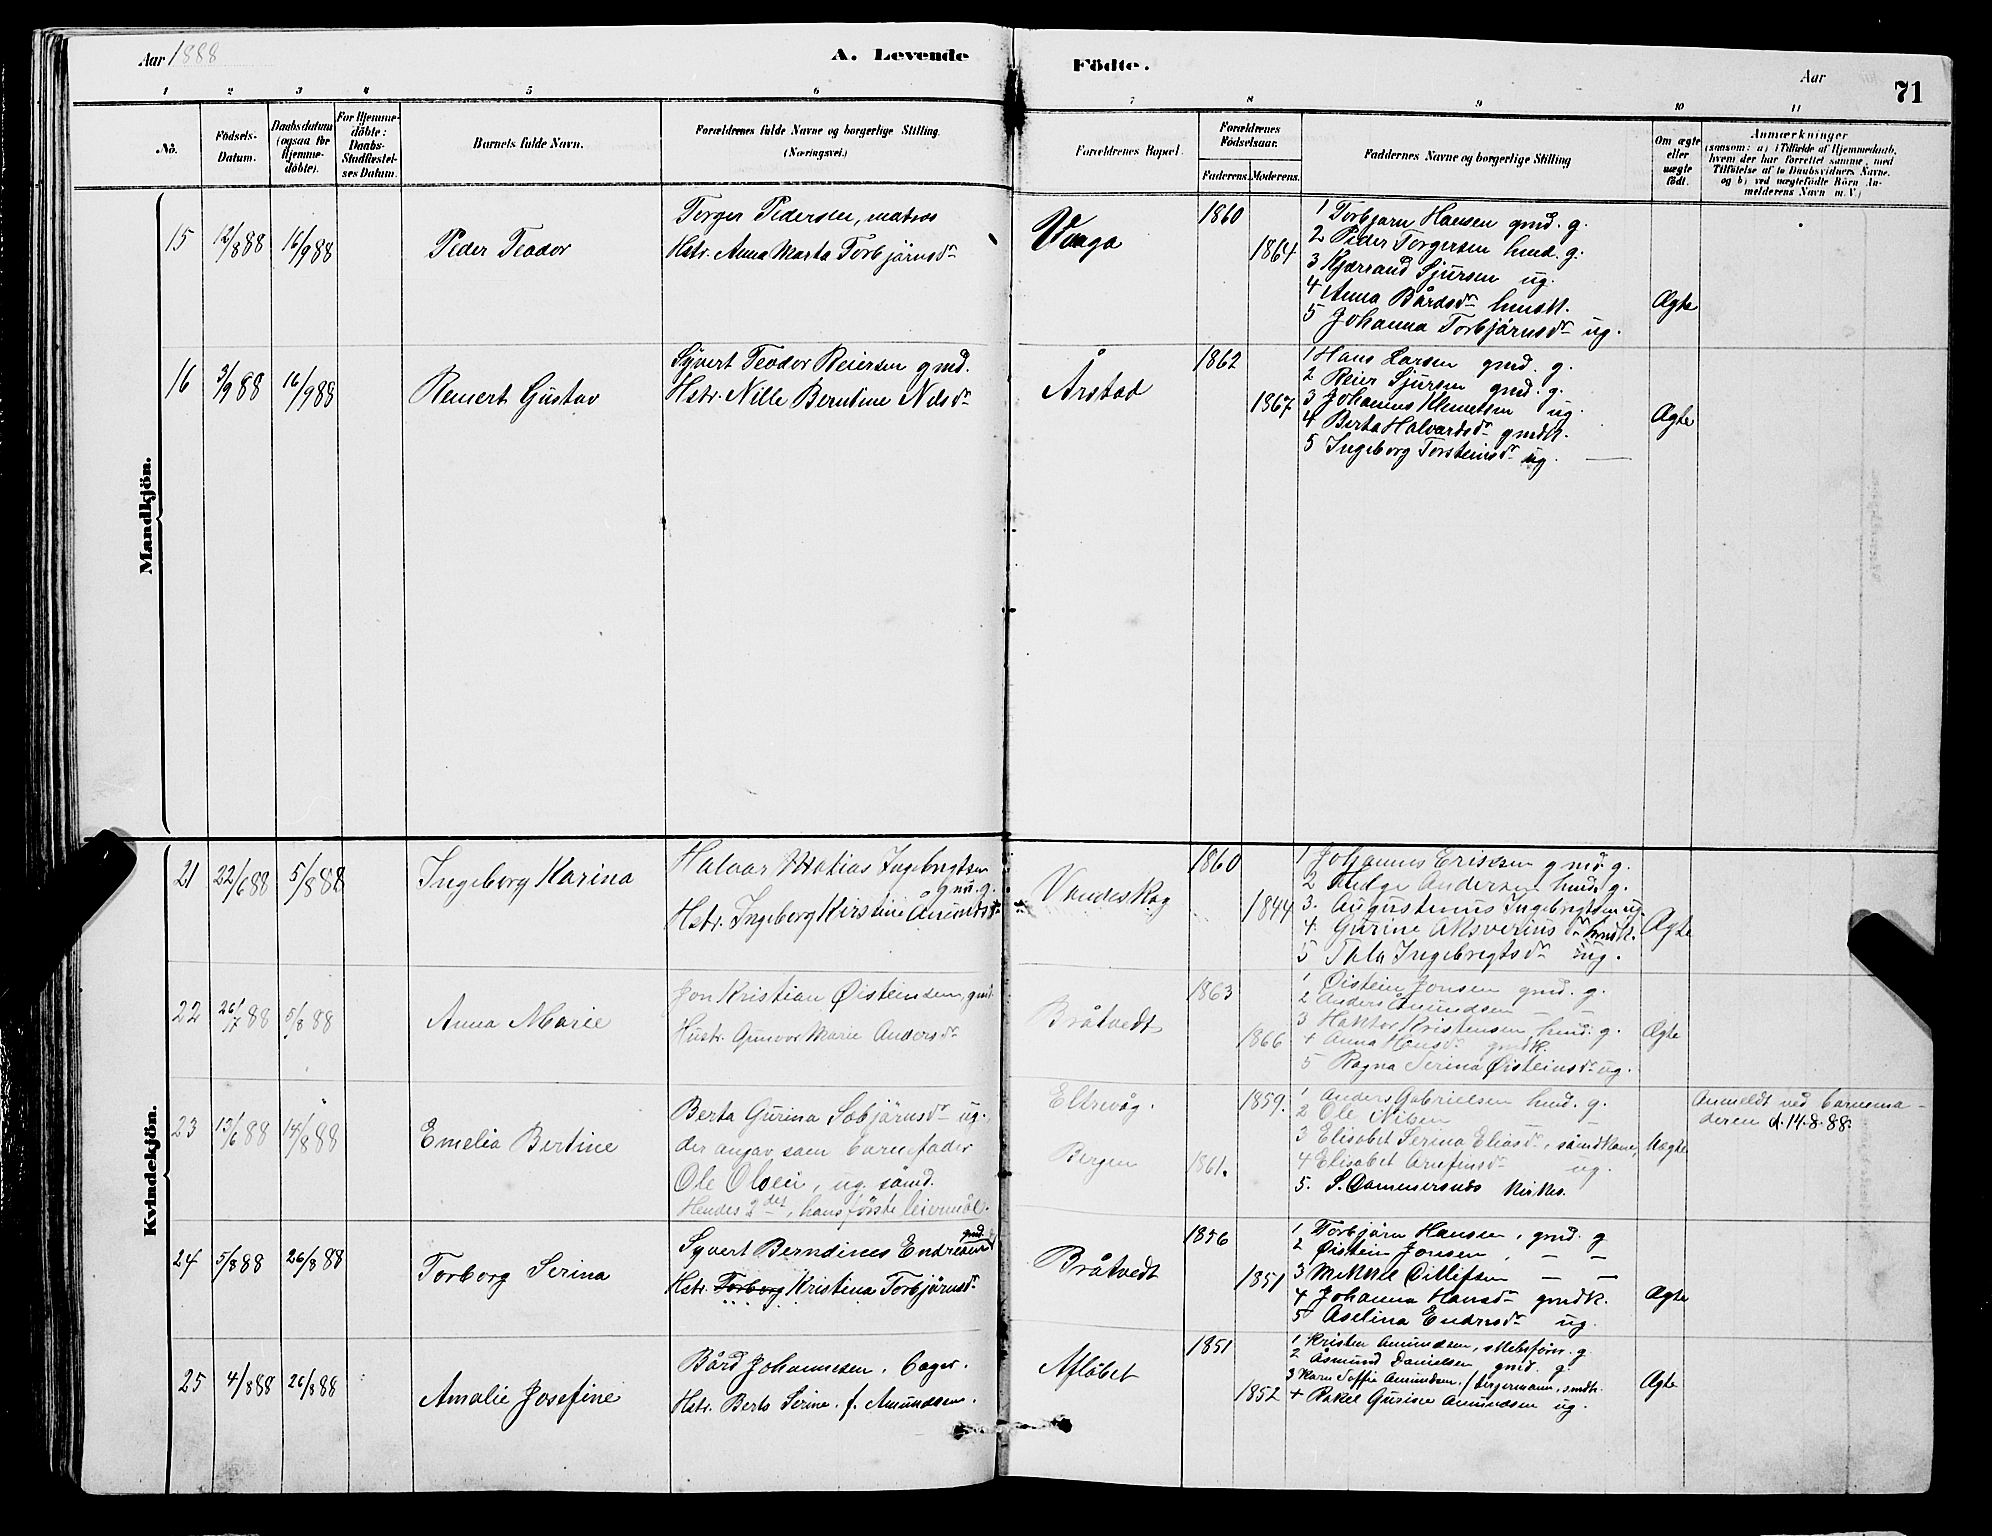 Aar 1888
A. Levende
Födte.
Aar
71
1 2 3 4 5 6 7 8 9 10 11
No.
Födsels-Datum.
Daabsdatum (ogsaa for Hjemme-döbte).
For Hjemme-döbte: Daabs-Stadfæstel-ses Datum.
Barnets fulde Navn.
Forældrenes fulde Navne og borgerlige Stilling.
(Næringsvei.)
Forældrenes Bopæl.
Forældrenes Födselsaar.
Faderens. Moderens.
Faddernes Navne og borgerlige Stilling
Om ægte eller uægte födt.
Anmærkninger
(saasom: a) i Tilfælde af Hjemmedaab,
hvem der har forrettet samme, med
Tilföielse af to Daabsvidners Navne.
og b) ved uægtefödte Börn An-
melderens Navn m. V.)
Mandkjön.
15 12/8 88 16/9 88
Peder Teodor
Torger Pedersen, matros
Hstr. Anna Marta Torbjörnsdr
Vaaga
1860
1864
1 Torbjørn Hansen gmd. g.
2 Peder Torgersen hmd. g.
3 Kjærrand Sjursen ug.
4 Anna Bårdsdr husk.
5 Johanna Torbjörnsdr ug.
Ægte
16 3/9 88 16/9 88
Reinert Gustav
Syvert Teodor Reiersen gmd.
Hstr. Nille Berntine Nilsdr
Årstad
1862
1867
1 Hans Larsen gmd. g.
2 Reier Sjursen gmd. g.
3 Johannes Klemetsen ug.
4 Berta Halvardsdr gmdk.
5 Ingeborg Torsteinsdr ug.
Ægte
Kvindekjön.
21 22/6 88 5/8 88
Ingeborg Karina
Halvar Matias Ingebrigtsen
gmd. g.
Hstr. Ingeborg Kirstine Åmundsdr
Vandeskog
1860
1844
1 Johannes Eriksen gmd. g.
2 Helge Andersen hmd. g.
3. Augustinus Ingebrigtsen ug.
4. Gurine Aksverius dr hmdk.
5 Tala Ingebregtsdr ug.
Ægte
22 26/7 88 5/8 88
Anna Marie
Jon Kristian Øisteinsen, gmd.
Hustr. Gunvor Marie Andersdr
Bråtvedt
1863
1866
1 Øistein Jonsen gmd. g.
2 Anders Åmundsen — —
3 Haktor Kristensen hmd. g.
4 Anna Hansdr gmdk.
5 Ragna Serina Øisteinsdr ug.
Ægte
23 13/6 88 14/8 88
Emelia Bertine
Berta Gurina Sobjörnsdr ug.,
der angav som barnefader
Ole Olsen, ug. sömd.
Hendes 2det, hans förste leiermål.
Eltrevåg.
Bergen
1859.
1861.
1 Anders Gabrielsen hmd. g.
2 Ole Nilsen — —
3 Elisabet Serina Eliasdr, sömdkone,
4 Elisabet Arnfinsdr ug.
5. S. Dommersnæs kirkes.
Uægte
Anmeldt ved barnemo-
deren d. 14-8-88.
24 5/8 88 26/8 88
Torborg Serina
Syvert Berndines Endresen gmd.
Hstr. Torborg Kristina Torbjörnsdr
Bråtvedt
1856
1851
1 Torbjörn Hansen, gmd. g
2 Øistein Jonsen, — —
3 Mikkel Ditlefsen — —
4 Johanna Hansdr gmdk.
5 Aselina Endresdr ug.
Ægte
25 4/8 88 26/8 88
Amalie Josefine
Bård Johannesen, bager.
Hstr. Berta Serine f. Amundsen.
Afløbet
1851
1852
1 Kristen Amundsen, skibsförer. g
2 Åsmund Danielsen gmd. g
3 Karn Soffie Amundsen, f. Birgermann, smdk.
4 Rakel Gurine Amundsen ug.
Ægte